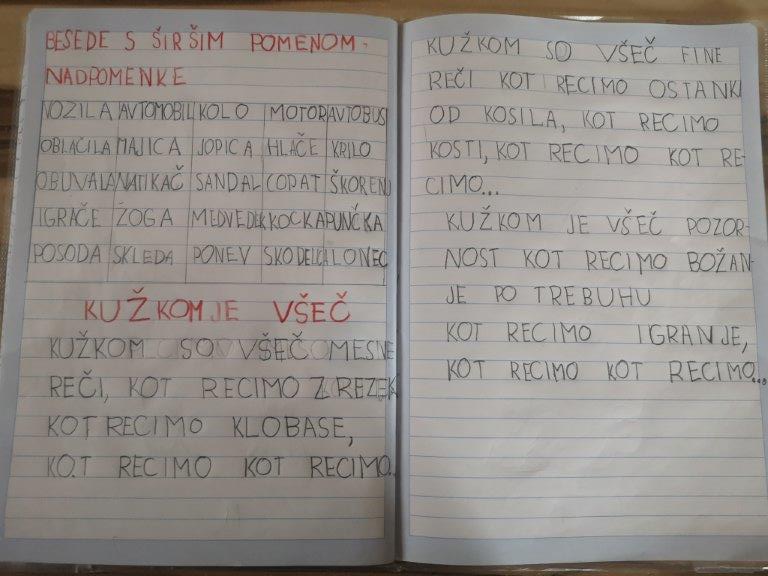 BESEDE S ŠIRŠIM POMENOM-
NADPOMENKE
VOZILA AVTOMOBIL KOLO MOTOR AVTOBUS
OBLAČILA MAJICA JOPICA HLAČE KRILO
OBUVALA NATIKAČ SANDAL COPAT ŠKORENJ
IGRAČE ŽOGA MEDVEDEK KOCKA PUNČKA
POSODA SKLEDA PONEV SKODELICA LONEC
KUŽKOM JE VŠEČ
KUŽKOM SO VŠEČ MESNE
REČI, KOT RECIMO ZREZEK
KOT RECIMO KLOBASE,
KOT RECIMO KOT RECIMO..
KUŽKOM SO VŠEČ FINE
REČI KOT RECIMO OSTANKI
OD KOSILA, KOT RECIMO
KOSTI, KOT RECIMO KOT RE-
CIMO...
KUŽKOM JE VŠEČ POZOR-
NOST KOT RECIMO BOŽAN-
JE PO TREBUHU
KOT RECIMO IGRANJE,
KOT RECIMO KOT RECIMO...